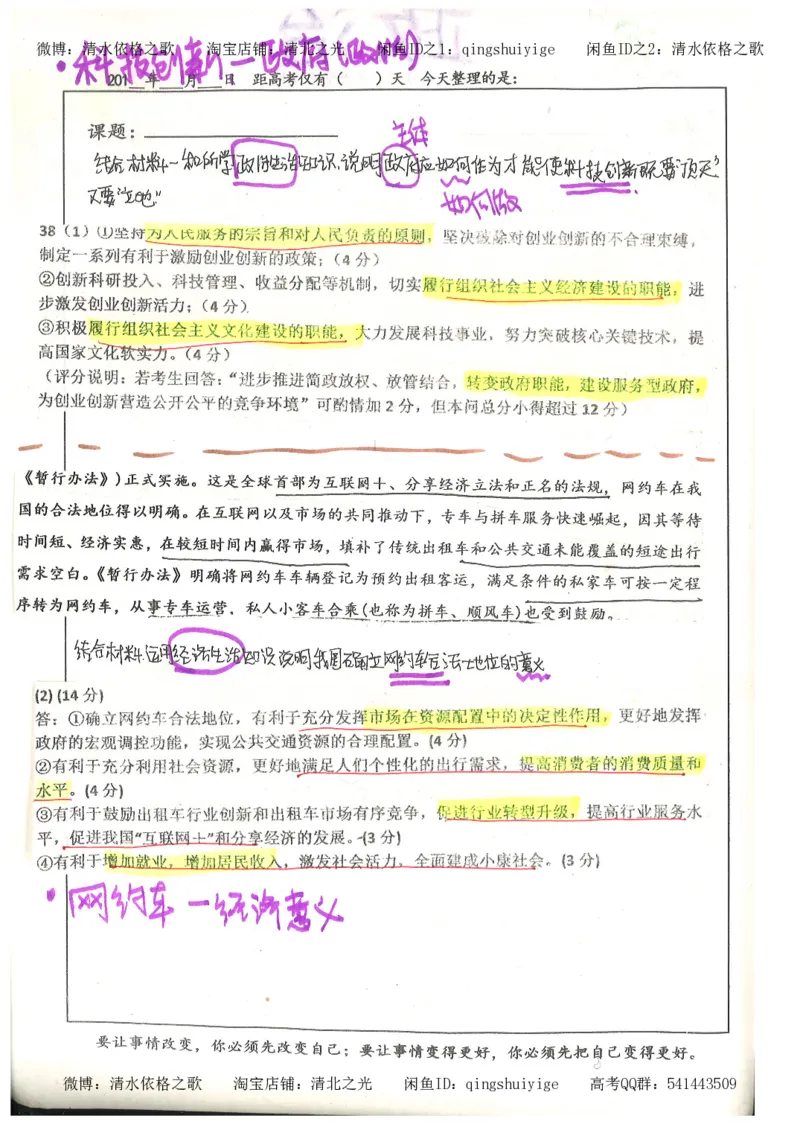 微博：清水依格之歌　淘宝店铺：清北之光　闲鱼ID之1：qingshuiyige　闲鱼ID之2：清水依格之歌
·科技创新—政府(政治)
201__年___月___日 距高考仅有（　）天 今天整理的是：
课题：
主体
结合材料一和所学政治生活知识，说明政府应如何作为才能使科技创新既要"顶天"
又要"立地"
如何做
38（1）①坚持为人民服务的宗旨和对人民负责的原则，坚决破除对创业创新的不合理束缚，
制定一系列有利于激励创业创新的政策；（4分）
②创新科研投入、科技管理、收益分配等机制，切实履行组织社会主义经济建设的职能，进
步激发创业创新活力；（4分）
③积极履行组织社会主义文化建设的职能，大力发展科技事业，努力突破核心关键技术，提
高国家文化软实力。（4分）
（评分说明：若考生回答："进步推进简政放权、放管结合，转变政府职能，建设服务型政府，
为创业创新营造公开公平的竞争环境"可酌情加2分，但本问总分小得超过12分）
《暂行办法》)正式实施。这是全球首部为互联网十、分享经济立法和正名的法规，网约车在我
国的合法地位得以明确。在互联网以及市场的共同推动下，专车与拼车服务快速崛起，因其等待
时间短、经济实惠，在较短时间内赢得市场，填补了传统出租车和公共交通未能覆盖的短途出行
需求空白。《暂行办法》明确将网约车车辆登记为预约出租客运，满足条件的私家车可按一定程
序转为网约车，从事专车运营．私人小客车合乘(也称为拼车、顺风车)也受到鼓励。
结合材料运用经济生活知识说明我国确立网约车合法地位的意义
(2) (14分)
答：①确立网约车合法地位，有利于充分发挥市场在资源配置中的决定性作用，更好地发挥
政府的宏观调控功能，实现公共交通资源的合理配置。(4分)
②有利于充分利用社会资源，更好地满足人们个性化的出行需求，提高消费者的消费质量和
水平。(4分)
③有利于鼓励出租车行业创新和出租车市场有序竞争，促进行业转型升级，提高行业服务水
平，促进我国"互联网十"和分享经济的发展。(3分)
④有利于增加就业，增加居民收入，激发社会活力，全面建成小康社会。(3分)
·网约车—经济意义
要让事情改变，你必须先改变自己；要让事情变得更好，你必须先把自己变得更好。
微博：清水依格之歌　淘宝店铺：清北之光　闲鱼ID：qingshuiyige　高考QQ群：541443509